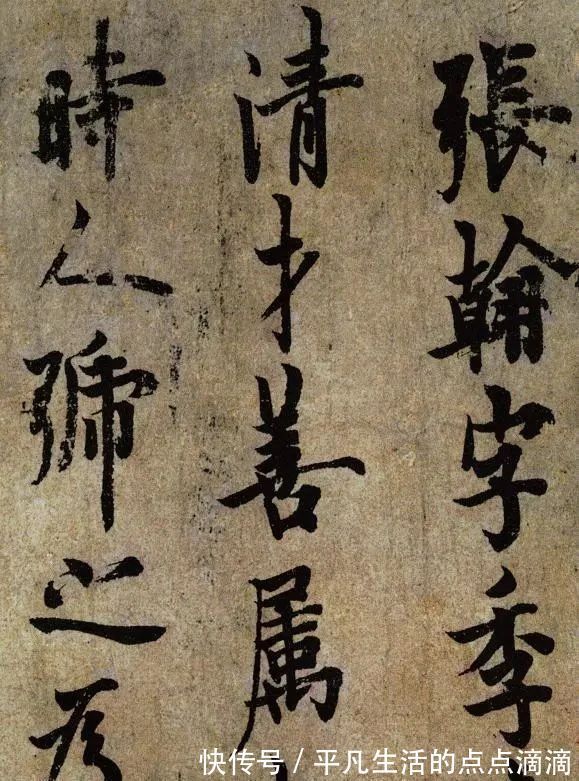 張翰字季
清才善属
時人號之
快传号 / 平凡生活的点点滴滴